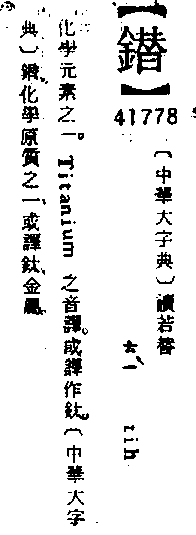 【鐟】
41778
〔中華大字典〕讀若替 ㄊㄧˋ tih
化學元素之一。Titanium 之音譯。或譯作鈦。〔中華大字
典〕鐟化學原質之一、或譯鈦、金屬。